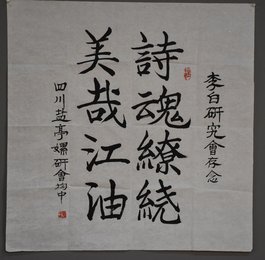 李白研究會存念
詩魂繚繞
美哉江油
四川盐亭嫘研會均中